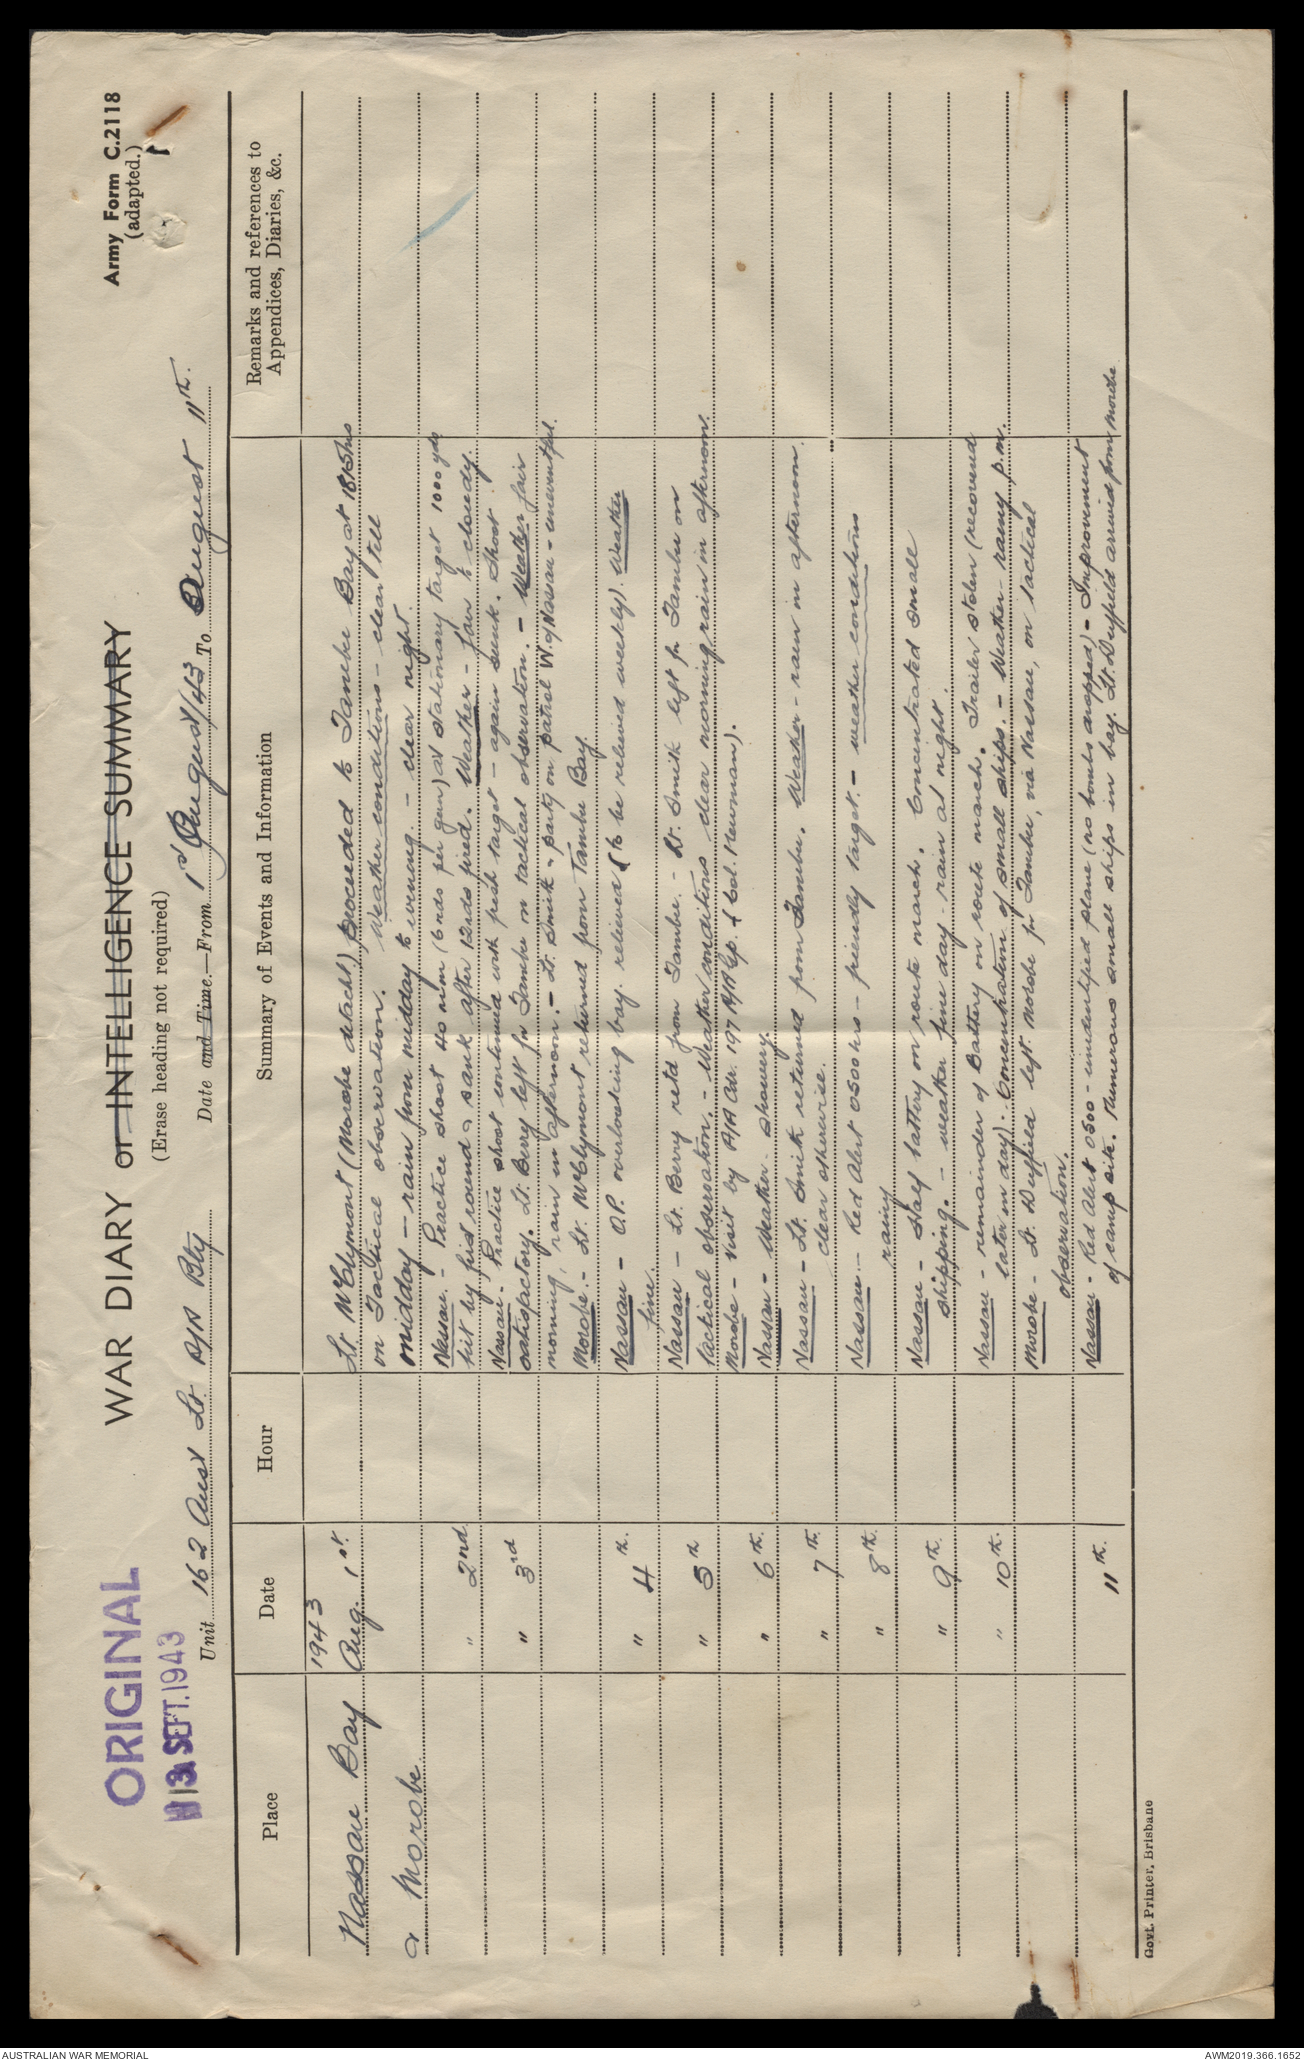 Army Form C.2118
(adapted.)
ORIGINAL
13 SEPT. 1943
WAR DIARY or INTELLIGENCE SUMMARY
(Erase heading not required)
Unit 162 Aust Lt. A/A Bty
Date and Time.—From 1st August/43 To August 11th.
Place
Date
Hour
Summary of Events and Information
Remarks and references to
Appendices, Diaries, &c.
Nassau Bay
& Morobe.
1943
Aug. 1st. Lt. McClymont (Morobe detacht.) proceeded to Tambu Bay at 1815hrs
on Tactical observation. Weather conditions - clear till
midday - rain from midday to evening. - clear night.
" 2nd. Nassau. - Practice shoot 40 m/m (6 rds per gun) at stationary target 1000 yds
hit by first round & sank after 12rds fired. Weather - fair to cloudy.
" 3rd Nassau. Practice shoot continued with fresh target - again sunk. Shoot
satisfactory. Lt. Berry left for Tambu on tactical observation. - Weather fair
morning, rain in afternoon. - Lt. Smith & party on patrol W. of Nassau - uneventful.
Morobe. - Lt. McClymont returned from Tambu Bay.
" 4th. Nassau - O.P. overlooking bay. relieved (to be relieved weekly). Weather
fine.
" 5th Nassau - Lt. Berry retd from Tambu. - Lt. Smith left for Tambu on
tactical observation. - Weather conditions clear morning, rain in afternoon.
Morobe - visit by A/A Cdr. 197 A/A Gp. & Col. Newman).
" 6th. Nassau - Weather - showery.
" 7th. Nassau - Lt. Smith returned from Tambu. Weather - rain in afternoon.
clear otherwise.
" 8th. Nassau. - Red Alert 0500 hrs - friendly target. - weather conditions
rainy
" 9th. Nassau - Half battery on route march. Concentrated small
shipping. - weather fine day - rain at night.
" 10th. Nassau - remainder of Battery on route march. Trailer stolen (recovered
later in day). Concentration of small ships. - Weather - rainy p.m.
Morobe - Lt. Duffield left Morobe for Tambu, via Nassau, on tactical
observation.
11th. Nassau - Red Alert 0500 - unidentified plane (no bombs dropped) - Improvement
of camp site. Numerous small ships in bay. Lt. Duffield arrived from Morobe
Govt. Printer, Brisbane
AUSTRALIAN WAR MEMORIAL
AWM2019.366.1652